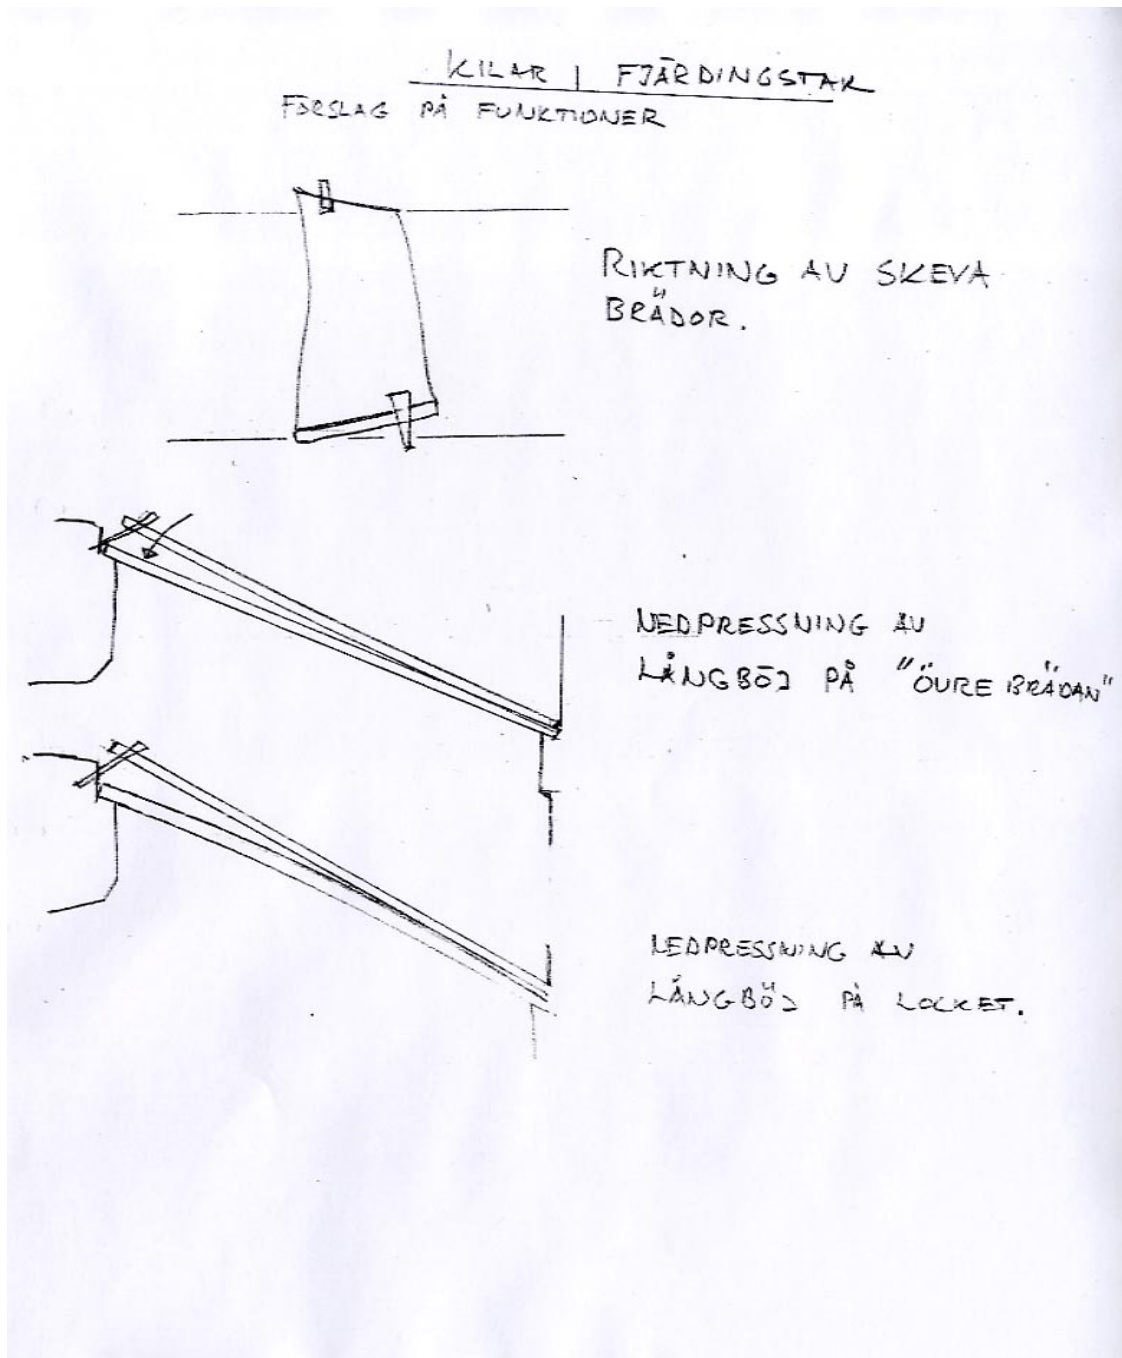 KILAR I FJÄRDINGSTAK
FÖRSLAG PÅ FUNKTIONER
RIKTNING AV SKEVA
BRÄDOR.
NEDPRESSNING AV
LÅNGBÖJ PÅ "ÖVRE BRÄDAN"
NEDPRESSNING AV
LÅNGBÖJ PÅ LOCKET.